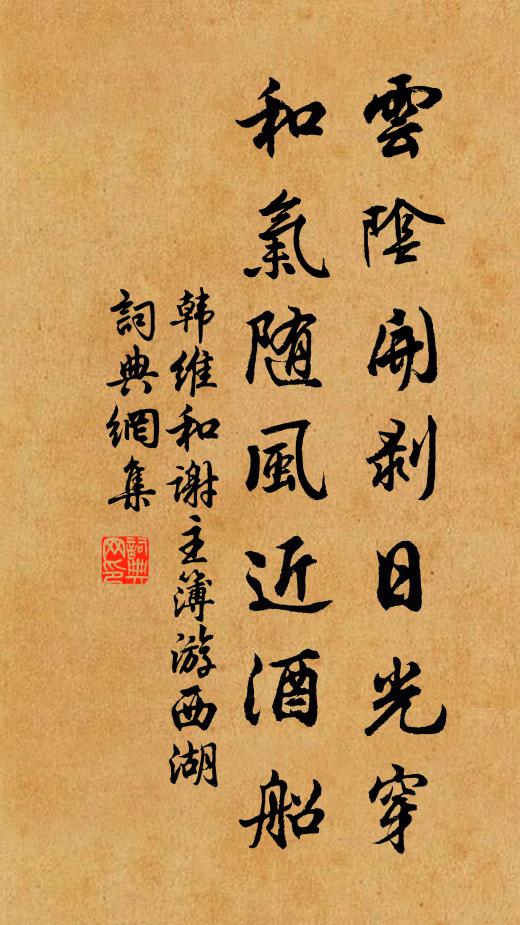 雲陰開剥日光穿
和氣随風近酒船
韩維和谢主簿游西湖
詞典網集
詞典網印